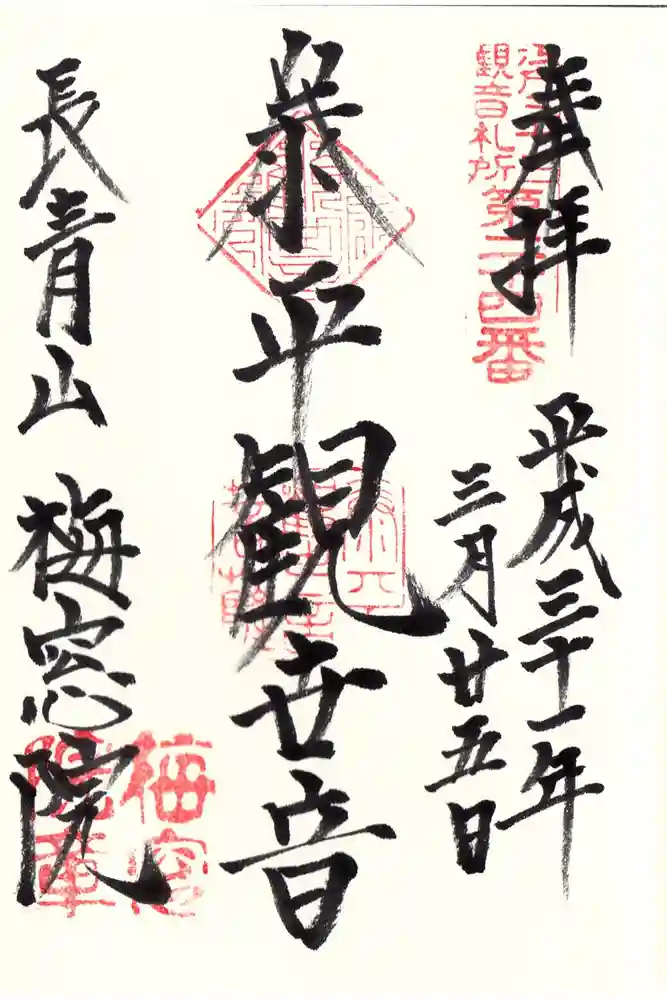 奉拝
江戸三十三
観音札所
第二十四番
平成三十一年
三月廿五日
泰平観世音
長青山 梅窓院
梅窓